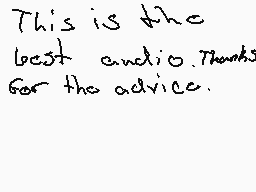 This is the
best audio. Thanks
for the advice.